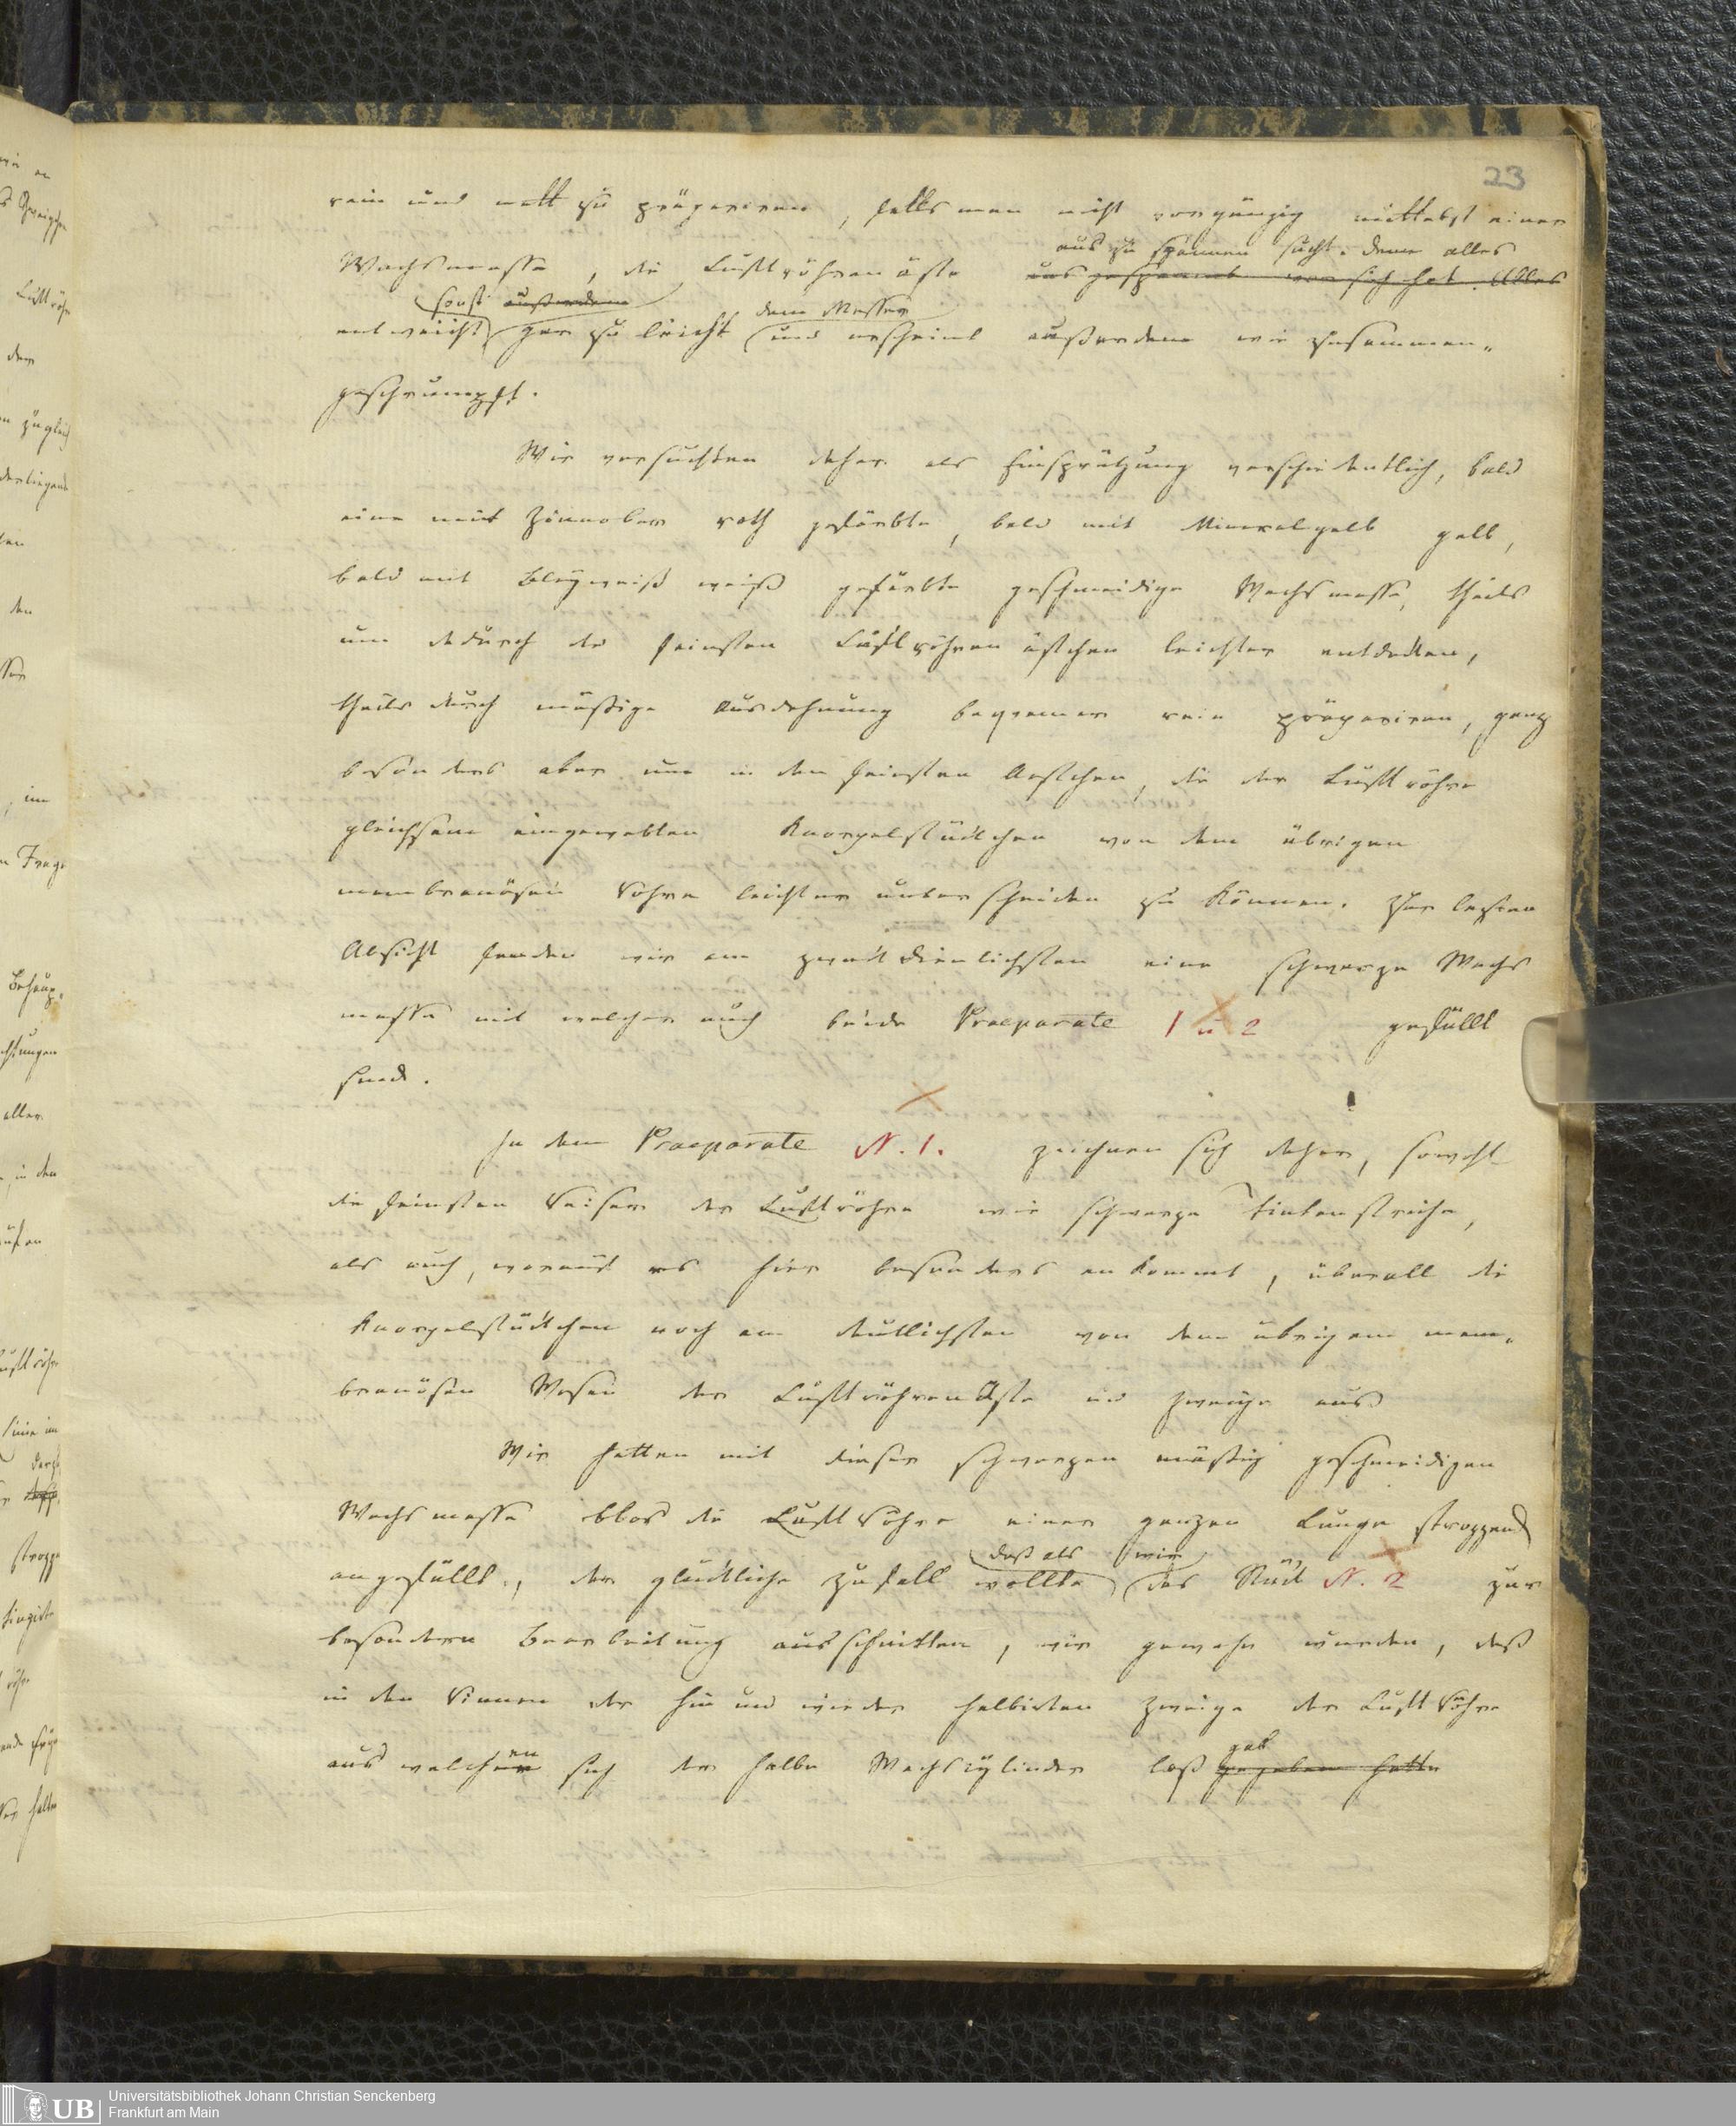 23
rein und nett zu präpariren, falls man nicht vorgängig mittelst einer
aus zu spannen sucht. denn alles
Wachsmasse, die Luftröhrenäste ausgespannt vor sich hat. Alles
sonst außerdem dem Messer
entweicht gar zu leicht und erscheint außerdem wie zusammen-
geschrumpft.
Wir versuchten daher als Einsprützung verschiedentlich, bald
eine mit Zinnober roth gefärbte, bald mit Mineralgelb gelb,
bald mit Bleyweiß weiß gefärbte geschmeidige Wachsmasse, theils
um dadurch die feinsten Luftröhrenästchen leichter entdecken,
theils durch mäßige Ausdehnung bequemer rein präpariren, ganz
besonders aber um in den feinsten Aestchen, die der Luftröhre
gleichsam eingewebten Knorpelstückchen von dem übrigen
membranösen Rohre leichter unterscheiden zu können. Zur lezten
Absicht fanden wir am zweckdienlichsten eine schwarze Wachs
masse mit welcher auch beide Praeparate 1 u 2 gefüllt
sind.
In dem Praeparate N. 1. zeichnen sich daher, sowohl
die feinsten Reiser der Luftröhre wie schwarze Tintenstriche,
als auch, worauf es hier besonders ankommt, überall die
Knorpelstückchen noch am deutlichsten von dem übrigen mem-
branösen Wesen der Luftröhrenäste und Zweige aus
Wir hatten mit dieser schwarzen mäßig geschmeidigen
Wachsmasse blos die Luftröhre einer ganzen Lunge stroppend
daß als wir
angefüllt, der glückliche Zufall wollte das Stück N. 2 zur
besondern Bearbeitung ausschnitten, wir gewahr wurden, daß
in den Rinnen der hin und wieder halbirten Zweige der Luftröhre
en gab
aus welcher sich der halbe Wachscylinder loß gegeben hatte
Universitätsbibliothek Johann Christian Senckenberg
Frankfurt am Main
UB